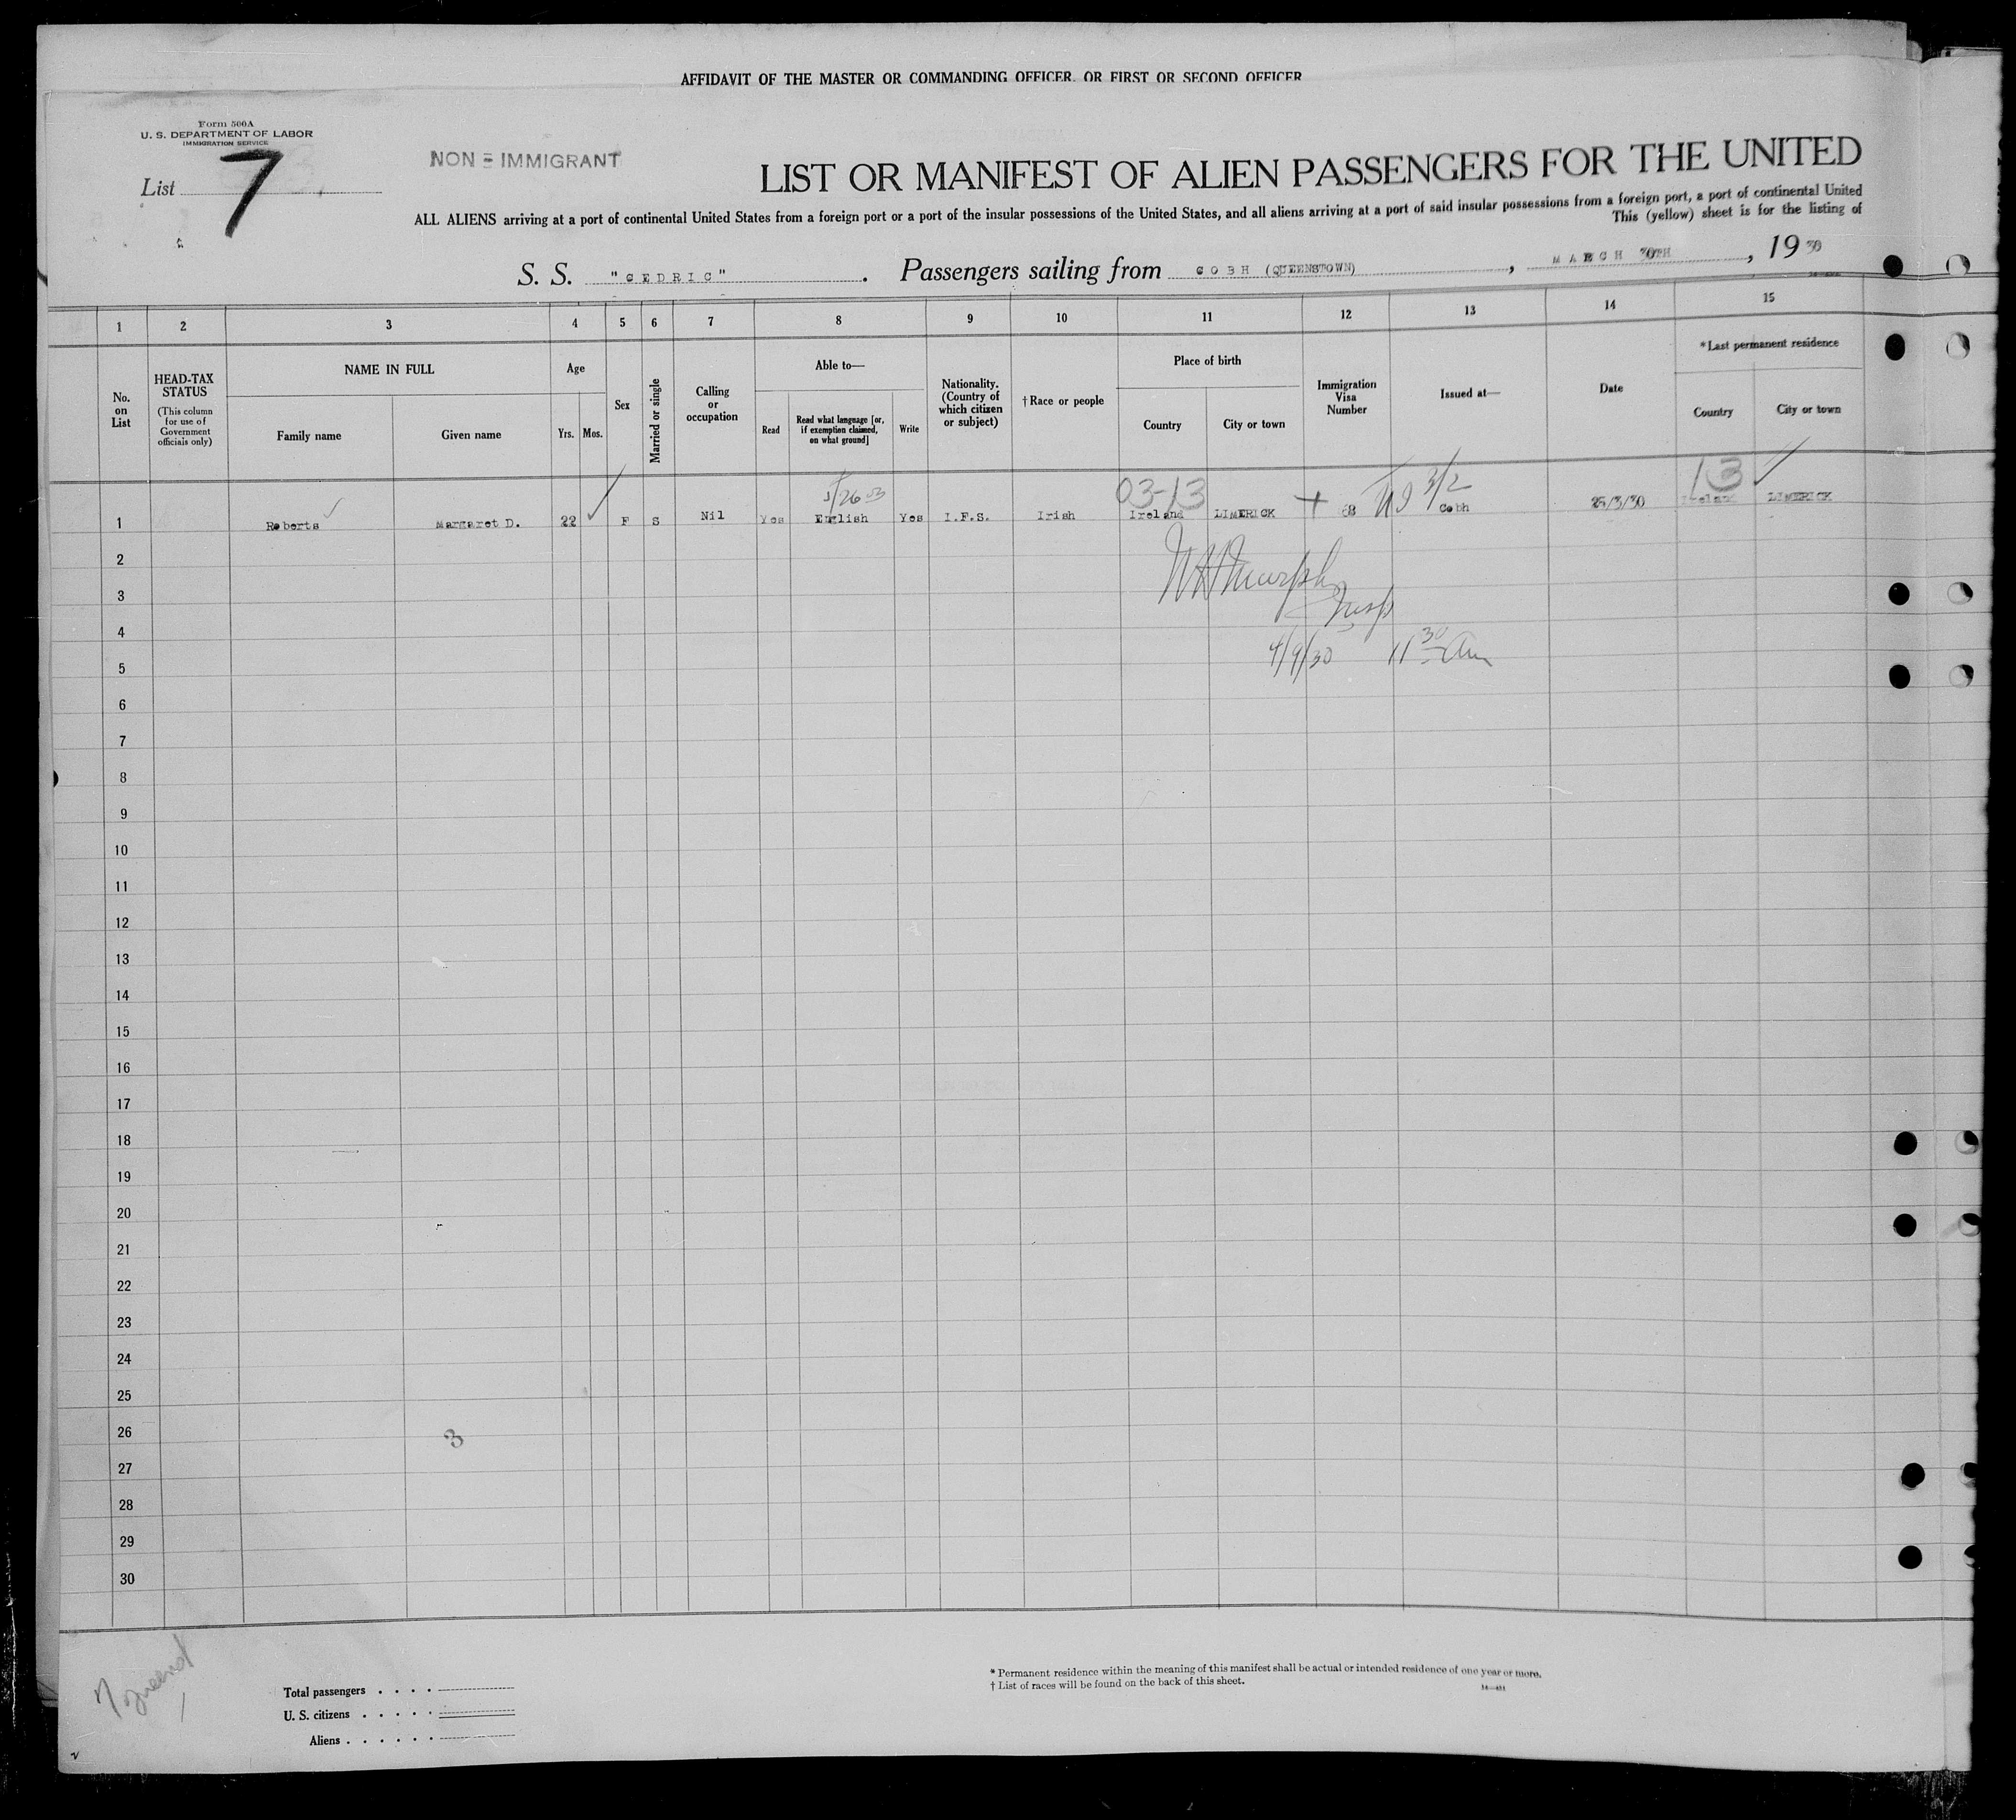 AFFIDAVIT OF THE MASTER OR COMMANDING OFFICER, OR FIRST OR SECOND OFFICER
Form 500A
U. S. DEPARTMENT OF LABOR
IMMIGRATION SERVICE
List 7
NON-IMMIGRANT
LIST OR MANIFEST OF ALIEN PASSENGERS FOR THE UNITED
ALL ALIENS arriving at a port of continental United States from a foreign port or a port of the insular possessions of the United States, and all aliens arriving at a port of said insular possessions from a foreign port, a port of continental United
This (yellow) sheet is for the listing of
S. S. "CEDRIC". Passengers sailing from COBH (QUEENSTOWN), MARCH 30TH, 1930
1 2 3 4 5 6 7 8 9 10 11 12 13 14 15
No. on List
HEAD-TAX STATUS
(This column for use of Government officials only)
NAME IN FULL
Family name
Given name
Age
Yrs.
Mos.
Sex
Married or single
Calling or occupation
Able to—
Read
Read what language [or, if exemption claimed, on what ground]
Write
Nationality. (Country of which citizen or subject)
†Race or people
Place of birth
Country
City or town
Immigration Visa Number
Issued at—
Date
*Last permanent residence
Country
City or town
03-13
3/2
13
1 Roberts Margaret D. 22 F S Nil Yes English Yes I.F.S. Irish Ireland LIMERICK 68 Cobh 25/3/30 Ireland LIMERICK
2
Murphy
3
Insp
4
5
4/9/30 11 30 Am
6
7
8
9
10
11
12
13
14
15
16
17
18
19
20
21
22
23
24
25
26
3
27
28
29
30
Total passengers
U. S. citizens
Aliens
* Permanent residence within the meaning of this manifest shall be actual or intended residence of one year or more.
† List of races will be found on the back of this sheet.